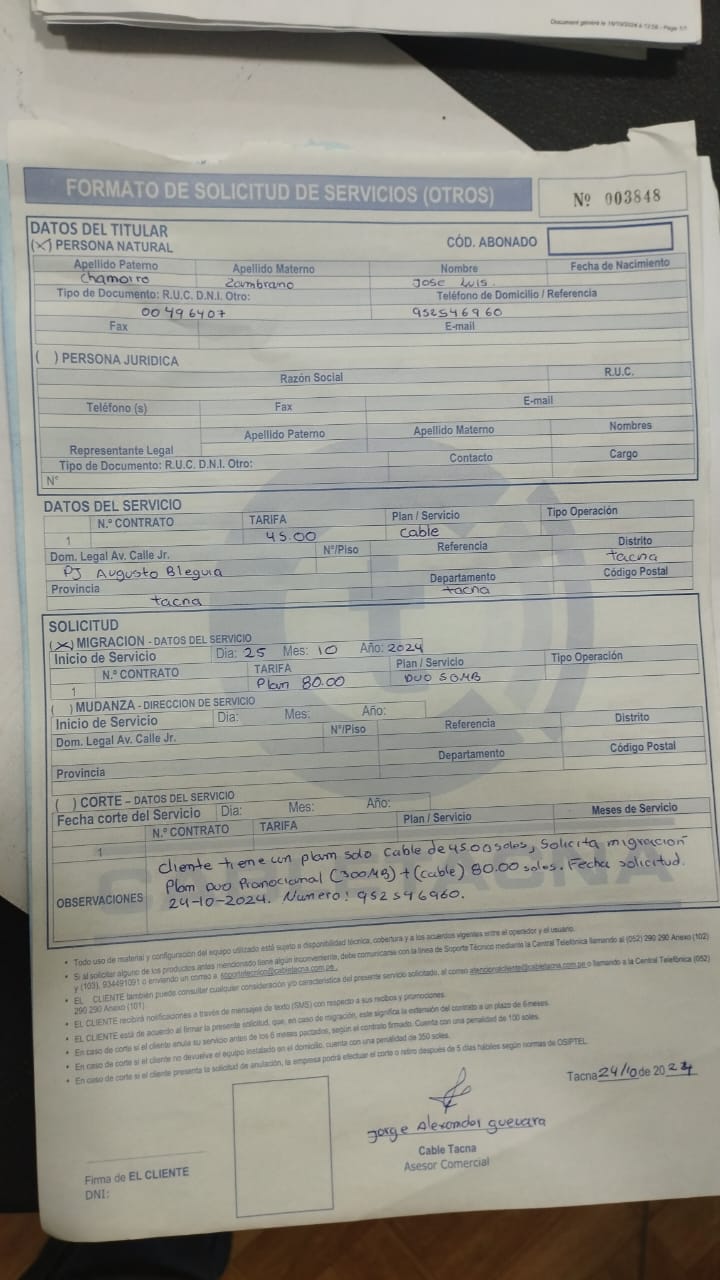 Document généré le 16/10/2024 à 12:56 - Page 1/1
FORMATO DE SOLICITUD DE SERVICIOS (OTROS)
Nº 003848
DATOS DEL TITULAR
(X) PERSONA NATURAL
CÓD. ABONADO
Apellido Paterno Apellido Materno Nombre Fecha de Nacimiento
Chamorro Zambrano Jose Luis.
Tipo de Documento: R.U.C. D.N.I. Otro: Teléfono de Domicilio / Referencia
00496407 952546960
Fax E-mail
( ) PERSONA JURIDICA
Razón Social R.U.C.
Teléfono (s) Fax E-mail
Representante Legal Apellido Paterno Apellido Materno Nombres
Tipo de Documento: R.U.C. D.N.I. Otro: Contacto Cargo
N°
DATOS DEL SERVICIO
N.º CONTRATO TARIFA Plan / Servicio Tipo Operación
1 45.00 Cable
Dom. Legal Av. Calle Jr. N°/Piso Referencia Distrito
PJ Augusto Bleguia tacna
Provincia Departamento Código Postal
tacna tacna
SOLICITUD
(X) MIGRACION - DATOS DEL SERVICIO
Inicio de Servicio Dia: 25 Mes: 10 Año: 2024
N.º CONTRATO TARIFA Plan / Servicio Tipo Operación
1 Plan 80.00 DUO 50MB
( ) MUDANZA - DIRECCION DE SERVICIO
Inicio de Servicio Dia: Mes: Año:
Dom. Legal Av. Calle Jr. N°/Piso Referencia Distrito
Provincia Departamento Código Postal
( ) CORTE – DATOS DEL SERVICIO
Fecha corte del Servicio Dia: Mes: Año:
N.º CONTRATO TARIFA Plan / Servicio Meses de Servicio
1
OBSERVACIONES
Cliente tiene un plam solo Cable de 45.00 soles, Solicita migracion
Plam Duo Promocional (300MB) + (cable) 80.00 soles. Fecha solicitud.
24-10-2024. Numero: 952546960.
• Todo uso de material y configuración del equipo utilizado está sujeto a disponibilidad técnica, cobertura y a los acuerdos vigentes entre el operador y el usuario.
• Si al solicitar alguno de los productos antes mencionado tiene algún inconveniente, debe comunicarse con la línea de Soporte Técnico mediante la Central Telefónica llamando al (052) 290 290 Anexo (102)
y (103), 934491091 o enviando un correo a soportetecnico@cabletacna.com.pe.
• EL CLIENTE también puede consultar cualquier consideración y/o característica del presente servicio solicitado, al correo atencionalcliente@cabletacna.com.pe o llamando a la Central Telefónica (052)
290 290 Anexo (101)
• EL CLIENTE recibirá notificaciones a través de mensajes de texto (SMS) con respecto a sus recibos y promociones.
• EL CLIENTE está de acuerdo al firmar la presente solicitud, que, en caso de migración, este significa la extensión del contrato a un plazo de 6 meses.
• En caso de corte si el cliente anula su servicio antes de los 6 meses pactados, según el contrato firmado. Cuenta con una penalidad de 100 soles.
• En caso de corte si el cliente no devuelve el equipo instalado en el domicilio, cuenta con una penalidad de 350 soles.
• En caso de corte si el cliente presenta la solicitud de anulación, la empresa podrá efectuar el corte o retiro después de 5 días hábiles según normas de OSIPTEL.
Tacna 24/10 de 2024
Jorge Alexander guevara
Cable Tacna
Asesor Comercial
Firma de EL CLIENTE
DNI: